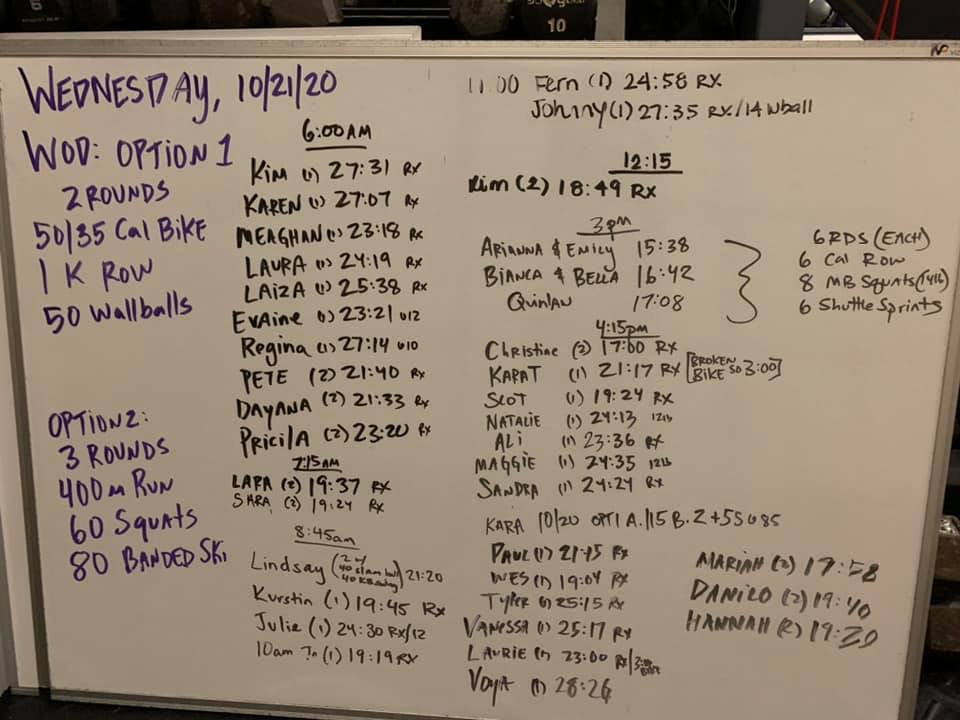 10
WEDNESDAY, 10/21/20
WOD: OPTION 1
2 ROUNDS
50/35 Cal BIKE
1 K ROW
50 Wallballs
OPTION 2:
3 ROUNDS
400m RUN
60 Squats
80 BANDED SKI
6:00AM
KIM (1) 27:31 RX
KAREN (1) 27:07 RX
MEAGHAN (1) 23:18 RX
LAURA (1) 24:19 RX
LAIZA (1) 25:38 RX
EVAINE (1) 23:21 @12
Regina (1) 27:14 @10
PETE (2) 21:40 RX
DAYANA (2) 21:33 RX
PRICILA (2) 23:20 RX
7:15AM
LARA (2) 19:37 RX
SARA (2) 19:24 RX
8:45am
Lindsay 40 slam ball 21:20
Kurstin (1) 19:45 RX
Julie (1) 24:30 RX/12
10am (1) 19:19 RX
11:00 Fern (1) 24:58 RX
Johnny (1) 27:35 RX/14 Wball
12:15
Kim (2) 18:49 RX
3pm
ARIANNA & EMILY 15:38
BIANCA & BELLA 16:42
QUINLAN 17:08
6 RDS (EACH)
6 Cal Row
8 MB Squats (14lb)
6 Shuttle Sprints
4:15pm
Christine (2) 17:00 RX
KARAT (1) 21:17 RX [BROKEN BIKE SO 3:00]
SCOT (1) 19:24 RX
NATALIE (1) 24:13 12lb
ALI (1) 23:36 RX
MAGGIE (1) 24:35 12lb
SANDRA (1) 24:24 RX
KARA 10/20 OPT1 A./115 B. 2+55 @85
PAUL (1) 21:15 RX
WES (1) 19:04 RX
TYLER (1) 25:15 RX
VANESSA (1) 25:17 RX
LAURIE (1) 23:00 RX/3:00 BIKE
VOYA (1) 28:26
MARIAH (2) 17:58
DANILO (2) 19:40
HANNAH (2) 19:20